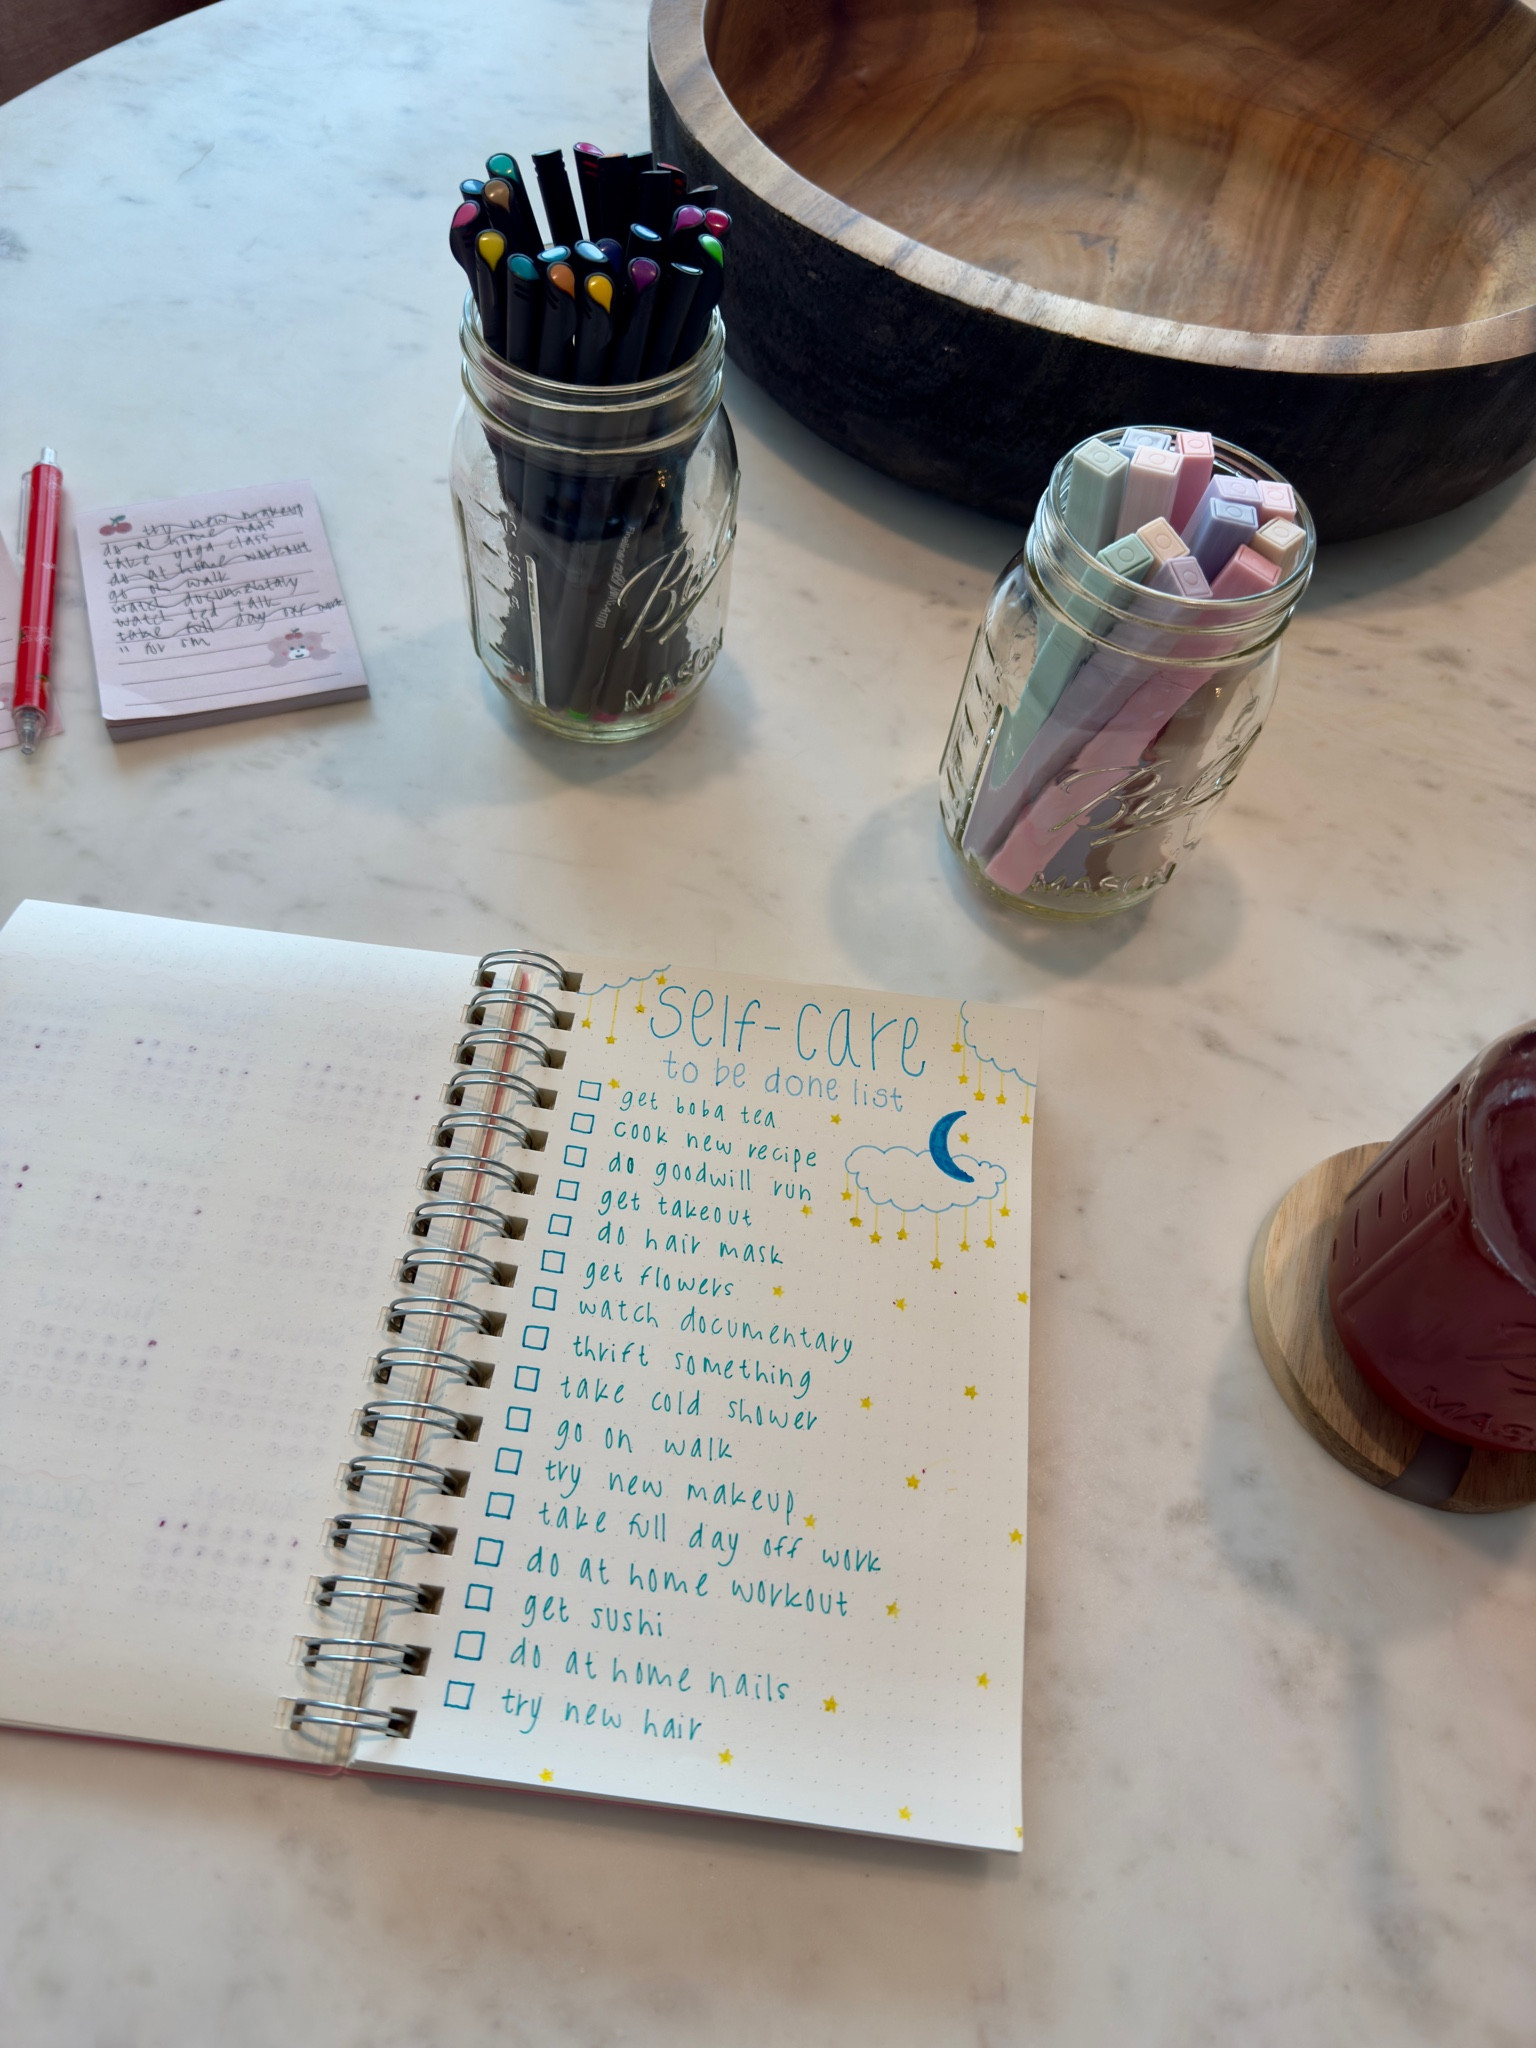 try new makeup
do at home nails
take yoga class
do at home workout
go on walk
watch documentary
watch ted talk
take full day off work
" for sm
Ball
MASON
Ball
MASON
self-care
to be done list
get boba tea
cook new recipe
do goodwill run
get takeout
do hair mask
get flowers
watch documentary
thrift something
take cold shower
go on walk
try new makeup
take full day off work
do at home workout
get sushi
do at home nails
try new hair
MAS